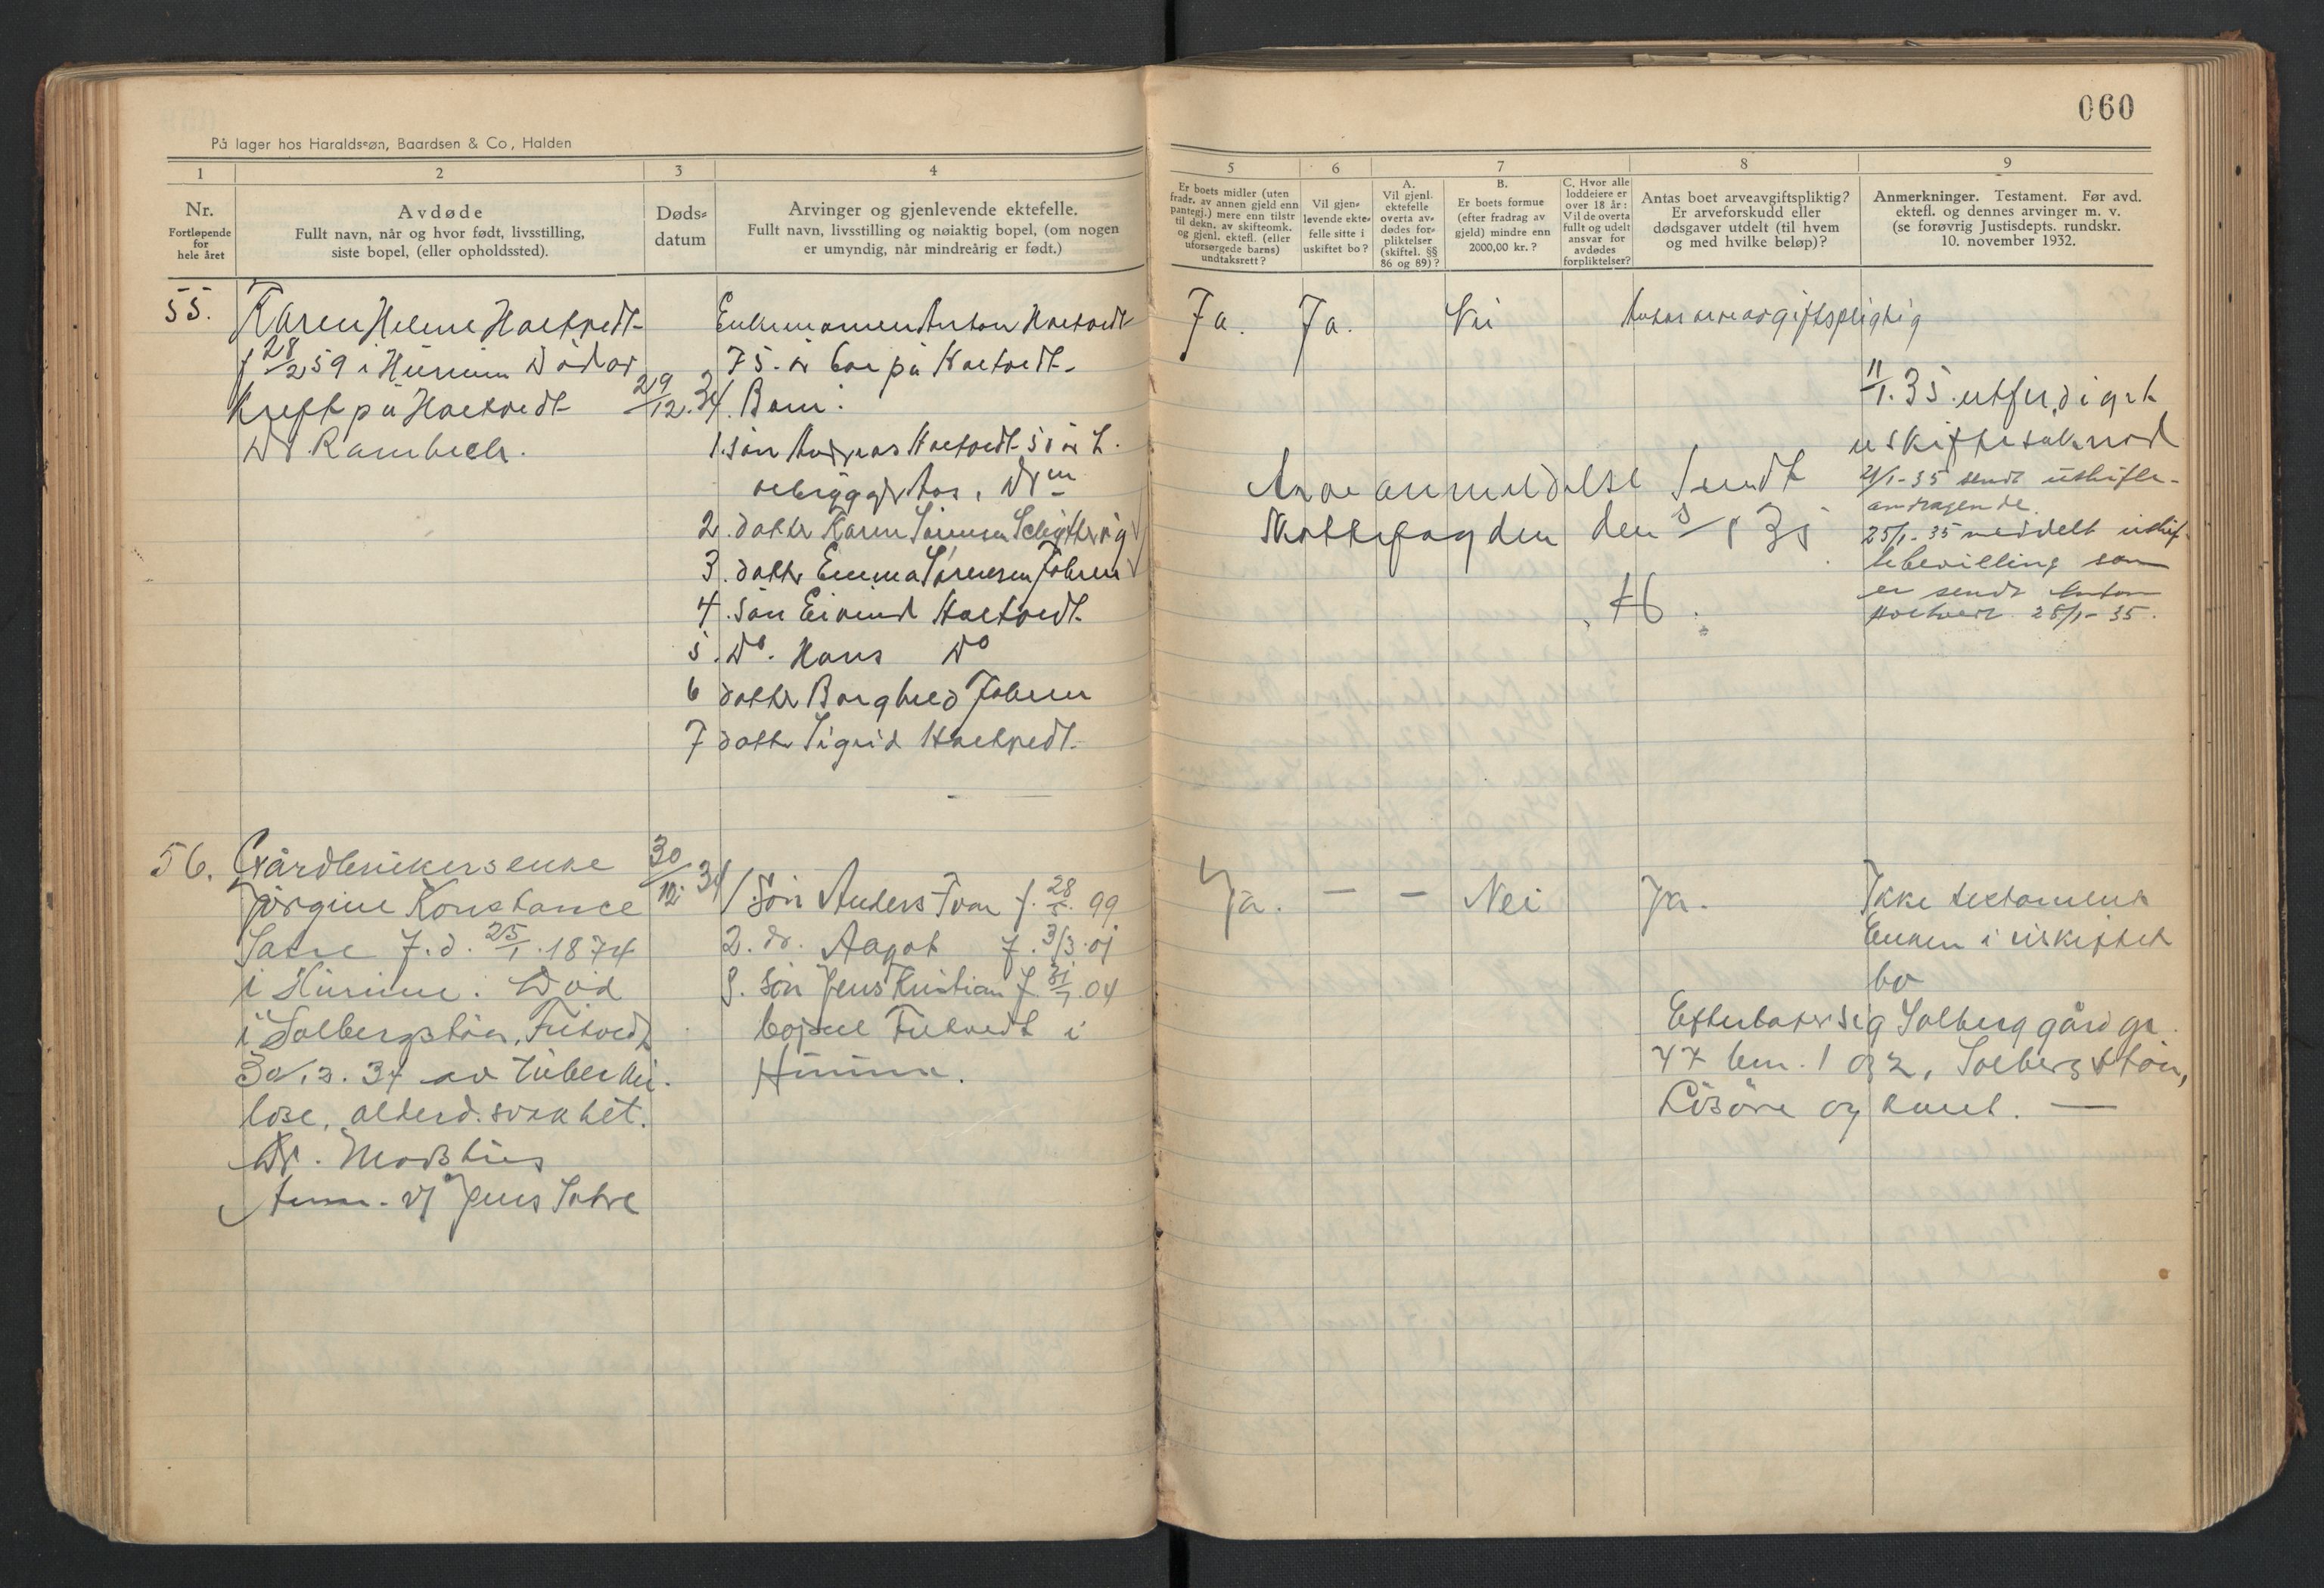 060
På lager hos Haraldsøn, Baardsen & Co, Halden
1 2 3 4 5 6 7 8 9
Nr.
Fortløpende
for
hele året
Avdøde
Fullt navn, når og hvor født, livsstilling,
siste bopel, (eller opholdssted).
Døds-
datum
Arvinger og gjenlevende ektefelle.
Fullt navn, livsstilling og nøiaktig bopel, (om nogen
er umyndig, når mindreårig er født.)
Er boets midler (uten
fradr. av annen gjeld enn
pantegj.) mere enn tilstr
til dekn. av skifteomk.
og gjenl. ektefl. (eller
uforsørgede barns)
undtaksrett?
Vil gjen-
levende ekte-
felle sitte i
uskiftet bo?
A.
Vil gjenl.
ektefelle
overta av-
dødes for-
pliktelser
(skiftel. §§
86 og 89)?
B.
Er boets formue
(efter fradrag av
gjeld) mindre enn
2000,00 kr.?
C. Hvor alle
loddeiere er
over 18 år:
Vil de overta
fullt og udelt
ansvar for
avdødes
forpliktelser?
Antas boet arveavgiftspliktig?
Er arveforskudd eller
dødsgaver utdelt (til hvem
og med hvilke beløp)?
Anmerkninger. Testament. Før avd.
ektefl. og dennes arvinger m. v.
(se forøvrig Justisdepts. rundskr.
10. november 1932.
55.
Karen Helene Holtvedt
f 28/2 59 i Hurum Død av
kreft på Holtvedt
Dr. Rambech.
29/12.34.
Enkemannen Anton Holtvedt
75 år bor på Holtvedt
Barn:
1. søn Andreas Holtvedt 50 år
2. datter Karen Sørensen
3. datter Emma Sørensen Tofen
4. søn Eivind Holtvedt.
5. Do. Hans Do
6 datter Borghild
7 datter Sigrid Holtvedt.
Ja. Ja. Nei Antas arveavgiftspligtig
11/1. 35. utferdiget
uskifteanmod
Arve anmeldelse sendt
Skattefogden den
21/1-35 sendt uskifte-
andragende.
25/1-35 meddelt uskif-
tebevilling som
er sendt Anton
Holtvedt 28/1-35.
56. Gårdbrukerenke
Jørgine Konstance
Sætre f. d. 25/1. 1874
i Hurum. Død
i Solbergstøa, Filtvedt
30/12. 34 av tuberku-
lose, alderd. svakhet.
Dr.
Anm. v/ Jens Sætre
30/12 34
1 Søn Anders Ivar f. 28/5. 99
2. dr. Aagot f. 3/3. 01
3. søn Jens Kristian f. 31/7. 04
bopæl Filtvedt i
Hurum.
Ja. — — Nei Ja.
Ikke testament
Enken i uskiftet
bo
Efterlater sig Solberg gård gr.
47 bn. 1 og 2, Solbergstøa,
Løsøre og —